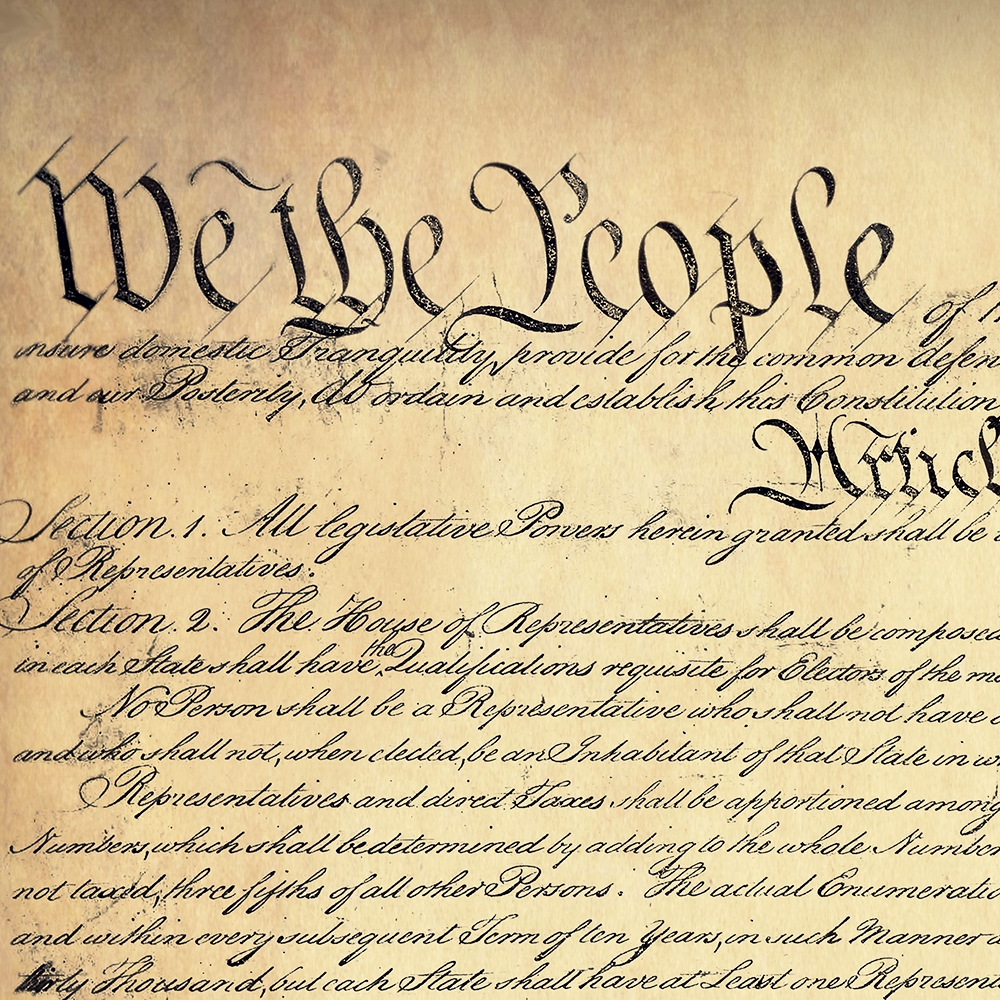 We the People of
insure domestic Tranquility, provide for the common defen
and our Posterity, do ordain and establish this Constitution
Articl
Section. 1. All legislative Powers herein granted shall be
of Representatives.
Section. 2. The House of Representatives shall be composed
in each State shall have the Qualifications requisite for Electors of the mo
No Person shall be a Representative who shall not have a
and who shall not, when elected, be an Inhabitant of that State in w
Representatives and direct Taxes shall be apportioned among
Numbers, which shall be determined by adding to the whole Number
not taxed, three fifths of all other Persons. The actual Enumeratio
and within every subsequent Term of ten Years, in such Manner a
thirty Thousand, but each State shall have at Least one Represent